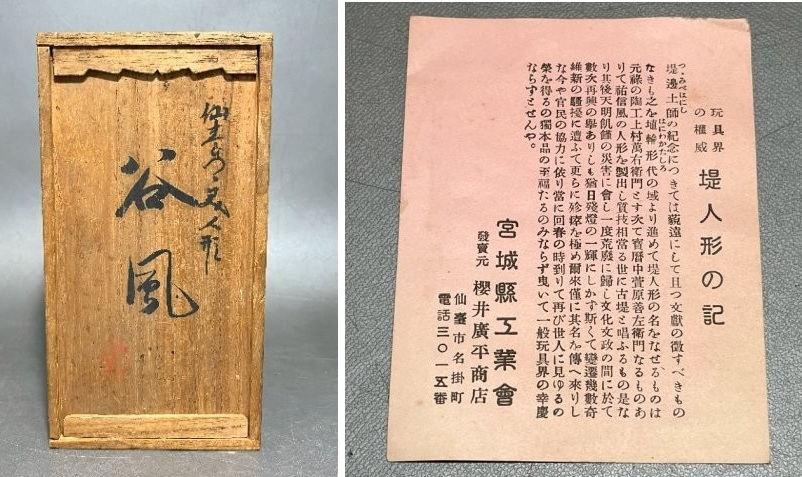 谷風
玩具界の權威
堤人形の記
つゝみべはにし
堤邊土師の紀念につきては藐遠にして且つ文獻の徴すべきもの
はにわかたしろ
なきも之を埴輪形代の域より進めて堤人形の名をなせるものは
元祿の陶工上村萬右衛門とす次て寶曆中菅原善左衛門なるものあ
りて祐信風の人形を製出し質技相當る世に古堤と唱ふるもの是な
り其後天明飢饉の災害に會し一度荒廢に歸し文化文政の間に於て
數次再興の擧ありしも猶日殘燈の一輝にしかず斯くて變遷幾數奇
維新の騷擾に遭ふて更らに殄瘁を極め爾來僅に其名を傳へ來りし
な今や官民の協力に依り當に回春の時到りて再び世人に見ゆるの
榮を得るの獨本品の至福たるのみならず曳いて一般玩具界の幸慶
ならずとせんや。
宮城縣工業會
發賣元 櫻井廣平商店
仙臺市名掛町
電話三〇一五番